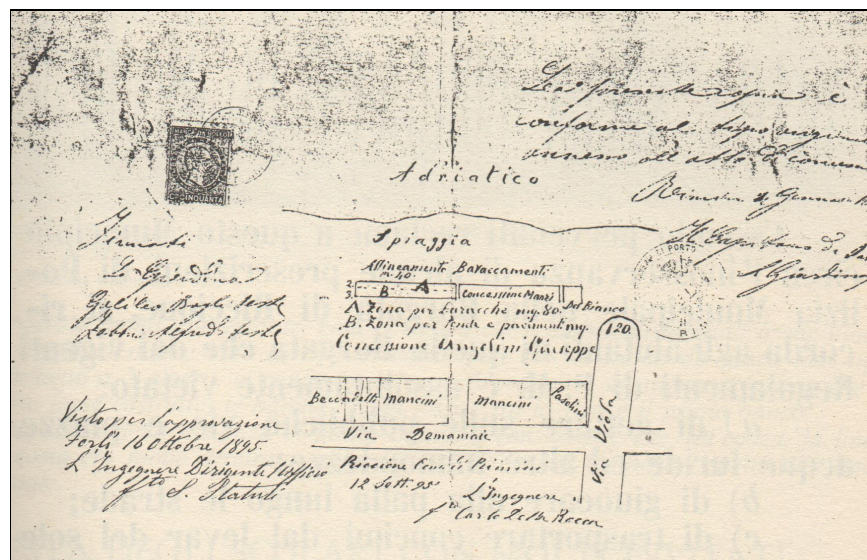 La presente copia è
conforme al tipo
annesso all'atto di
Rimini Gennaio
Il Capitano di
L. Giardini
CINQUANTA
Adriatico
Firmati
L. Giardini
Galileo teste
teste
Spiaggia
Allineamento Baraccamenti
m. 40.
2.
3.
A.
B.
Concessione Manzi
Del Bianco
A. Zona per baracche mq. 80.
B. Zona per tende e pavimenti mq. 120.
Concessione Angelini Giuseppe
Beccadelli
Mancini
Mancini
Pasolini
Via Viola
Via Demaniale
Via
Visto per l'approvazione
Forlì 16 Ottobre 1895
L'Ingegnere Dirigente l'Ufficio
fto S. Statuti
Riccione Comune Rimini
12 Sett. 95
L'Ingegnere
fto Carlo Della Rocca
PORTO